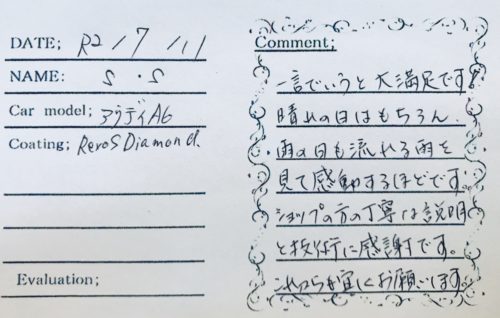 DATE; R2/7/11
NAME: S.S
Car model; アウディA6
Coating; RevoS Diamond.
Evaluation;
Comment;
一言でいうと大満足です!
晴れの日はもちろん、
雨の日も流れる雨を
見て感動するほどです。
ショップの方の丁寧な説明
と技術に感謝です。
これからも宜しくお願いします。